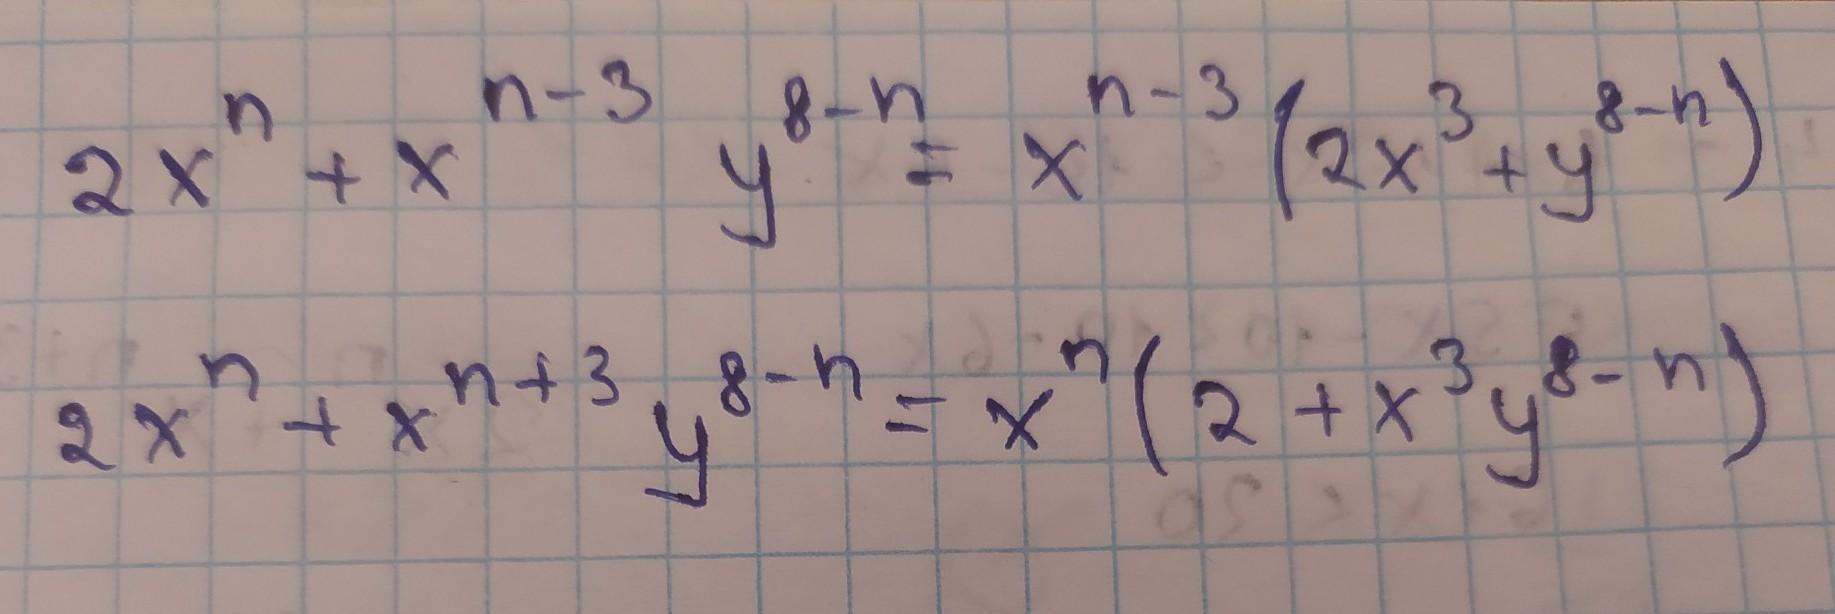 2xⁿ + xⁿ⁻³ y⁸⁻ⁿ = xⁿ⁻³ (2x³ + y⁸⁻ⁿ)
2xⁿ + xⁿ⁺³ y⁸⁻ⁿ = xⁿ (2 + x³y⁸⁻ⁿ)